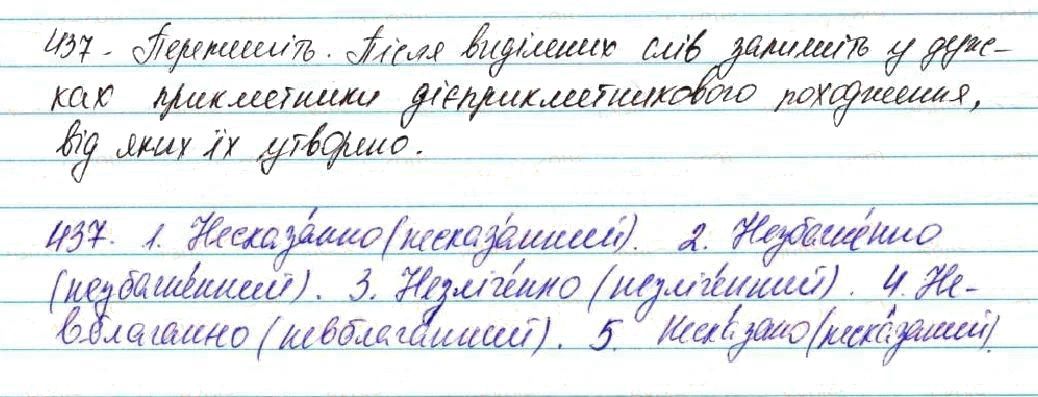 437. Перепишіть. Після виділених слів запишіть у дуж-
ках прикметники дієприкметникового походження,
від яких їх утворено.
437. 1. Несказа́нно (несказа́нний). 2. Незбагне́нно
(незбагне́нний). 3. Незліче́нно (незліче́нний). 4. Не-
вблаганно (невблага́нний). 5. Неска́зано (неска́заний).